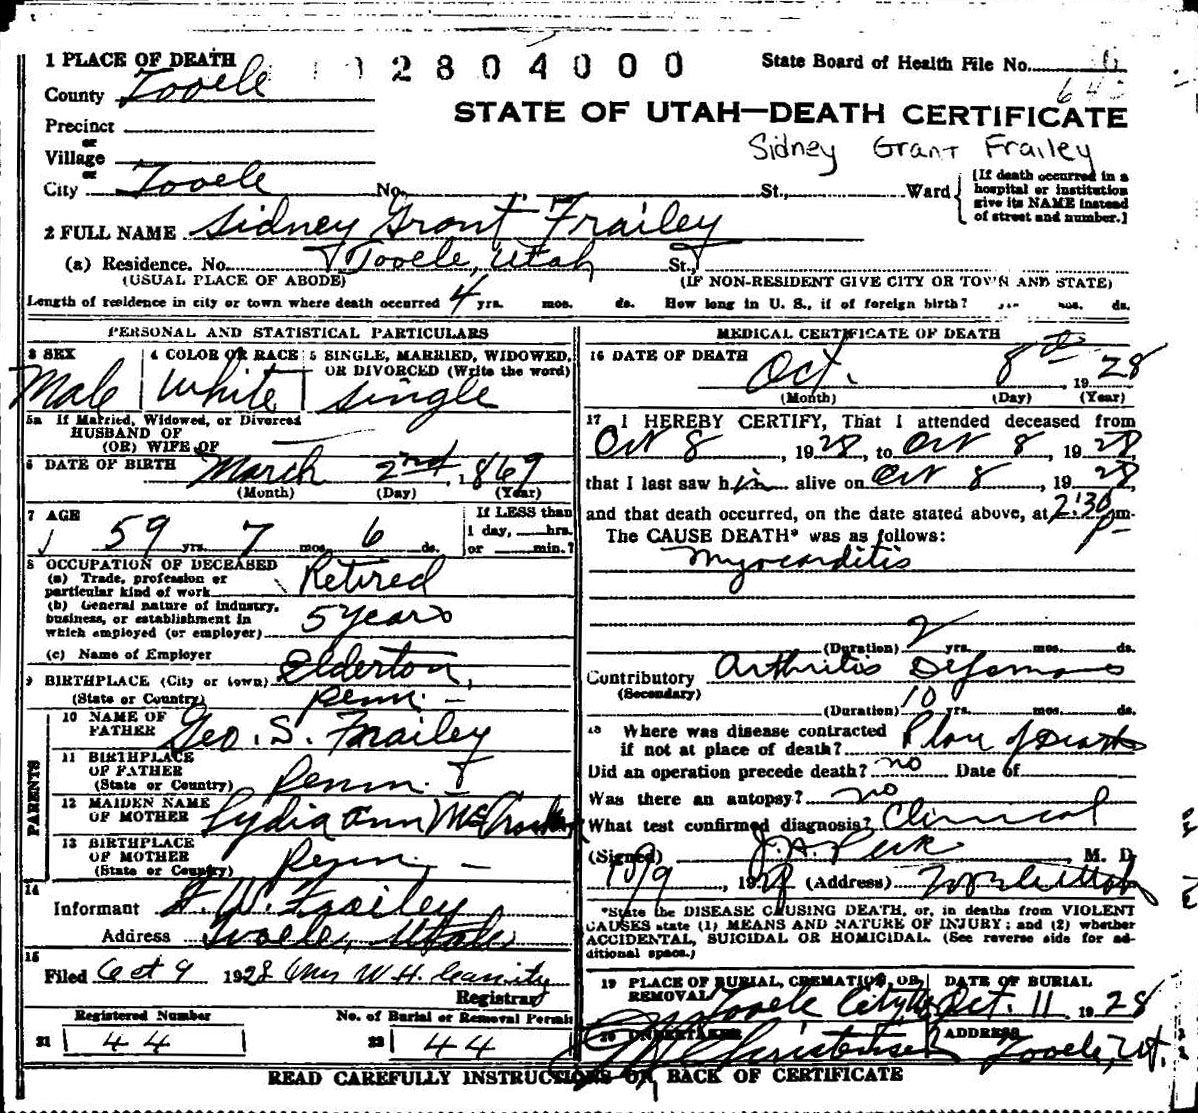 1 PLACE OF DEATH
County Tooele
2 8 0 4 0 0 0
State Board of Health File No.
Precinct
or
Village
or
City Tooele No. St., Ward
STATE OF UTAH—DEATH CERTIFICATE
Sidney Grant Frailey
[If death occurred in a
hospital or institution
give its NAME instead
of street and number.]
2 FULL NAME Sidney Grant Frailey
(a) Residence. No. Tooele, Utah St.,
(USUAL PLACE OF ABODE) (IF NON-RESIDENT GIVE CITY OR TOWN AND STATE)
Length of residence in city or town where death occurred 4 yrs. mos. ds. How long in U. S., if of foreign birth? yrs. mos. ds.
PERSONAL AND STATISTICAL PARTICULARS
3 SEX
Male
4 COLOR OR RACE
White
5 SINGLE, MARRIED, WIDOWED,
OR DIVORCED (Write the word)
Single
5a If Married, Widowed, or Divorced
HUSBAND OF
(OR) WIFE OF
6 DATE OF BIRTH March 2nd, 1869
(Month) (Day) (Year)
7 AGE
59 yrs. 7 mos. 6 ds.
If LESS than
1 day, hrs.
or min.?
8 OCCUPATION OF DECEASED
(a) Trade, profession or
particular kind of work Retired
(b) General nature of industry,
business, or establishment in
which employed (or employer) 5 years
(c) Name of Employer
9 BIRTHPLACE (City or town) Elderton,
(State or Country) Penn.
PARENTS
10 NAME OF
FATHER Geo. S. Frailey
11 BIRTHPLACE
OF FATHER
(State or Country) Penn.
12 MAIDEN NAME
OF MOTHER Lydia Ann
13 BIRTHPLACE
OF MOTHER
(State or Country) Penn.
14
Informant F. W. Frailey
Address Tooele, Utah
15
Filed Oct 9 1928 Mrs W. H.
Registrar
Registered Number
21 44
No. of Burial or Removal Permit
22 44
MEDICAL CERTIFICATE OF DEATH
16 DATE OF DEATH
Oct. 8th, 1928
(Month) (Day) (Year)
17 I HEREBY CERTIFY, That I attended deceased from
Oct 8, 1928, to Oct 8, 1928,
that I last saw him alive on Oct 8, 1928,
and that death occurred, on the date stated above, at 2:30 p m.
The CAUSE DEATH* was as follows:
Myocarditis
(Duration) 2 yrs. mos. ds.
Contributory Arthritis Deformans
(Secondary)
(Duration) 10 yrs. mos. ds.
18 Where was disease contracted
if not at place of death? Place of Death
Did an operation precede death? no Date of
Was there an autopsy? no
What test confirmed diagnosis? Clinical
(Signed) J. A. Peck, M. D.
10/9, 1928 (Address) Tooele Utah
*State the DISEASE CAUSING DEATH, or, in deaths from VIOLENT
CAUSES state (1) MEANS AND NATURE OF INJURY; and (2) whether
ACCIDENTAL, SUICIDAL OR HOMICIDAL. (See reverse side for ad-
ditional space.)
19 PLACE OF BURIAL, CREMATION OR
REMOVAL Tooele City
DATE OF BURIAL
Oct. 11 1928
20 UNDERTAKER
Christensen
ADDRESS
Tooele, Ut.
READ CAREFULLY INSTRUCTIONS ON BACK OF CERTIFICATE